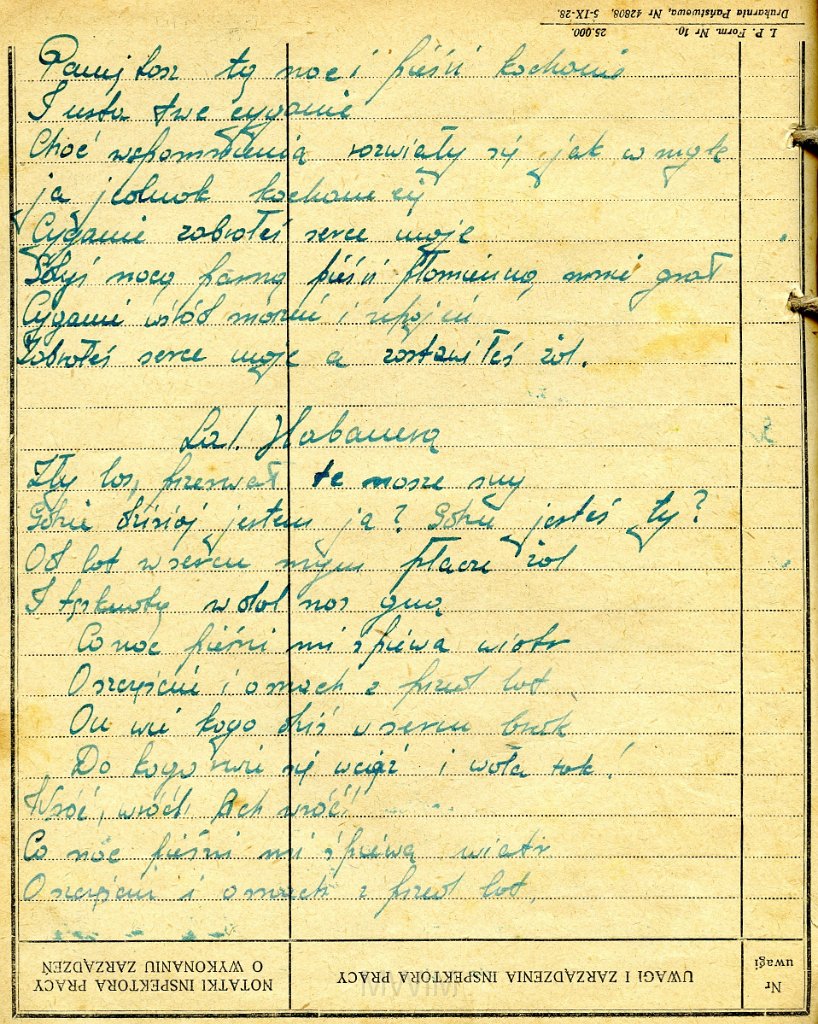 I. P. Form. Nr 10. 25.000.
Drukarnia Państwowa, Nr 42808. 5-IX-28.
Pamiętasz tę noc i pieśń kochanie
I usta twe cyganie
Choć wspomnienia rozwiały się jak w mgłę
ja jednak kocham cię
Cyganie zabrałeś serce moje
Gdyś nocą parną pieśń płomienną mnie grał
Cyganie wśród marzeń i upojeń
Zabrałeś serce moje a zostawiłeś żal.
La! Habanera
Zły los, przerwał te nasze sny
Gdzie dzisiaj jestem ja? Gdzie jesteś ty?
Od lat w sercu mym płacze żal
I tęsknoty w dal nas gna
Co noc pieśni mi śpiewa wiatr
O szczęściu i o mach z przed lat
On wie kogo dziś w sercu brak
Do kogo rwie się wciąż i woła tak!
Wróć, wróć! Ach wróć!
Co noc pieśni mi śpiewa wiatr
O szczęściu i o mach z przed lat.
Nr uwagi
UWAGI I ZARZĄDZENIA INSPEKTORA PRACY
NOTATKI INSPEKTORA PRACY O WYKONANIU ZARZĄDZEŃ